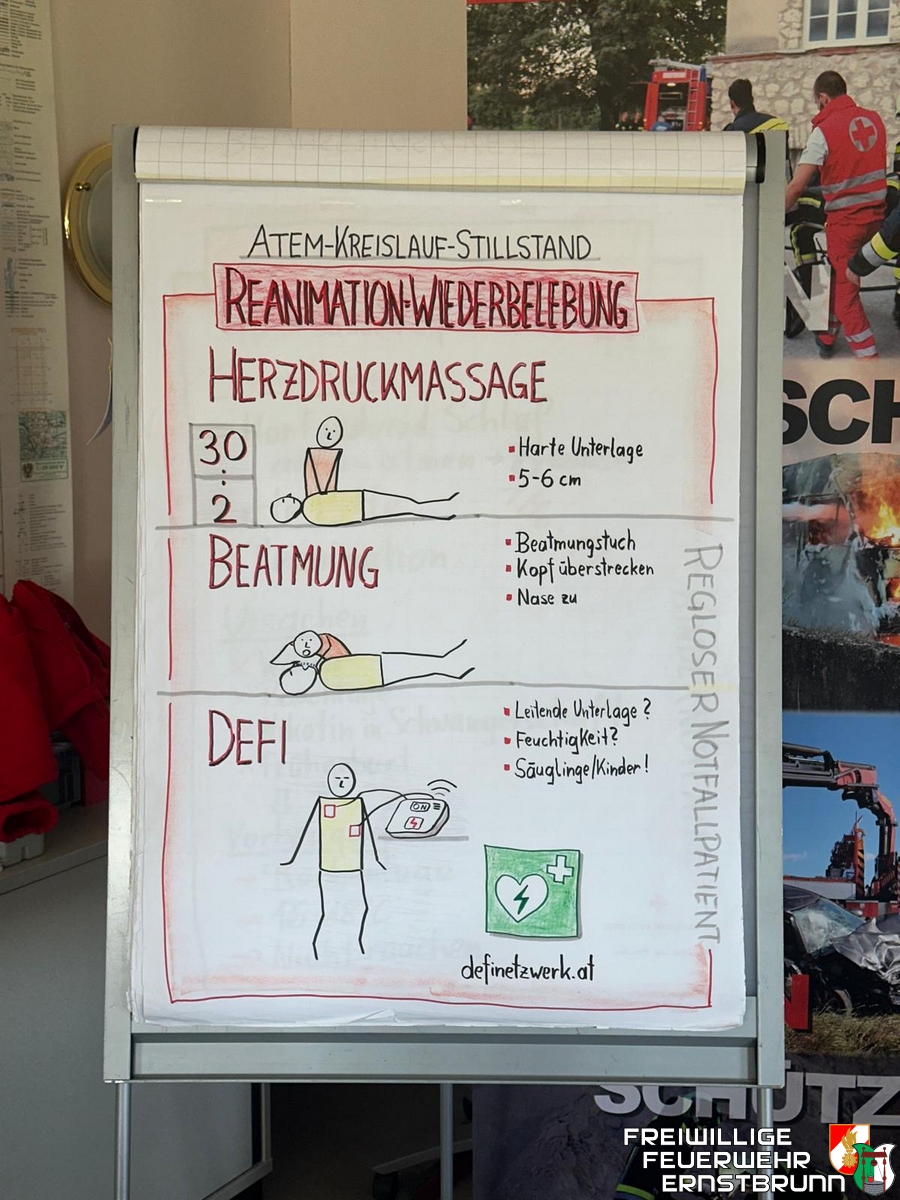 ATEM-KREISLAUF-STILLSTAND
REANIMATION-WIEDERBELEBUNG
HERZDRUCKMASSAGE
30
:
2
Harte Unterlage
5-6 cm
BEATMUNG
Beatmungstuch
Kopf überstrecken
Nase zu
DEFI
Leitende Unterlage?
Feuchtigkeit?
Säuglinge/Kinder!
ON
definetzwerk.at
REGLOSER NOTFALLPATIENT
SCH
SCHÜTZ
FREIWILLIGE
FEUERWEHR
ERNSTBRUNN